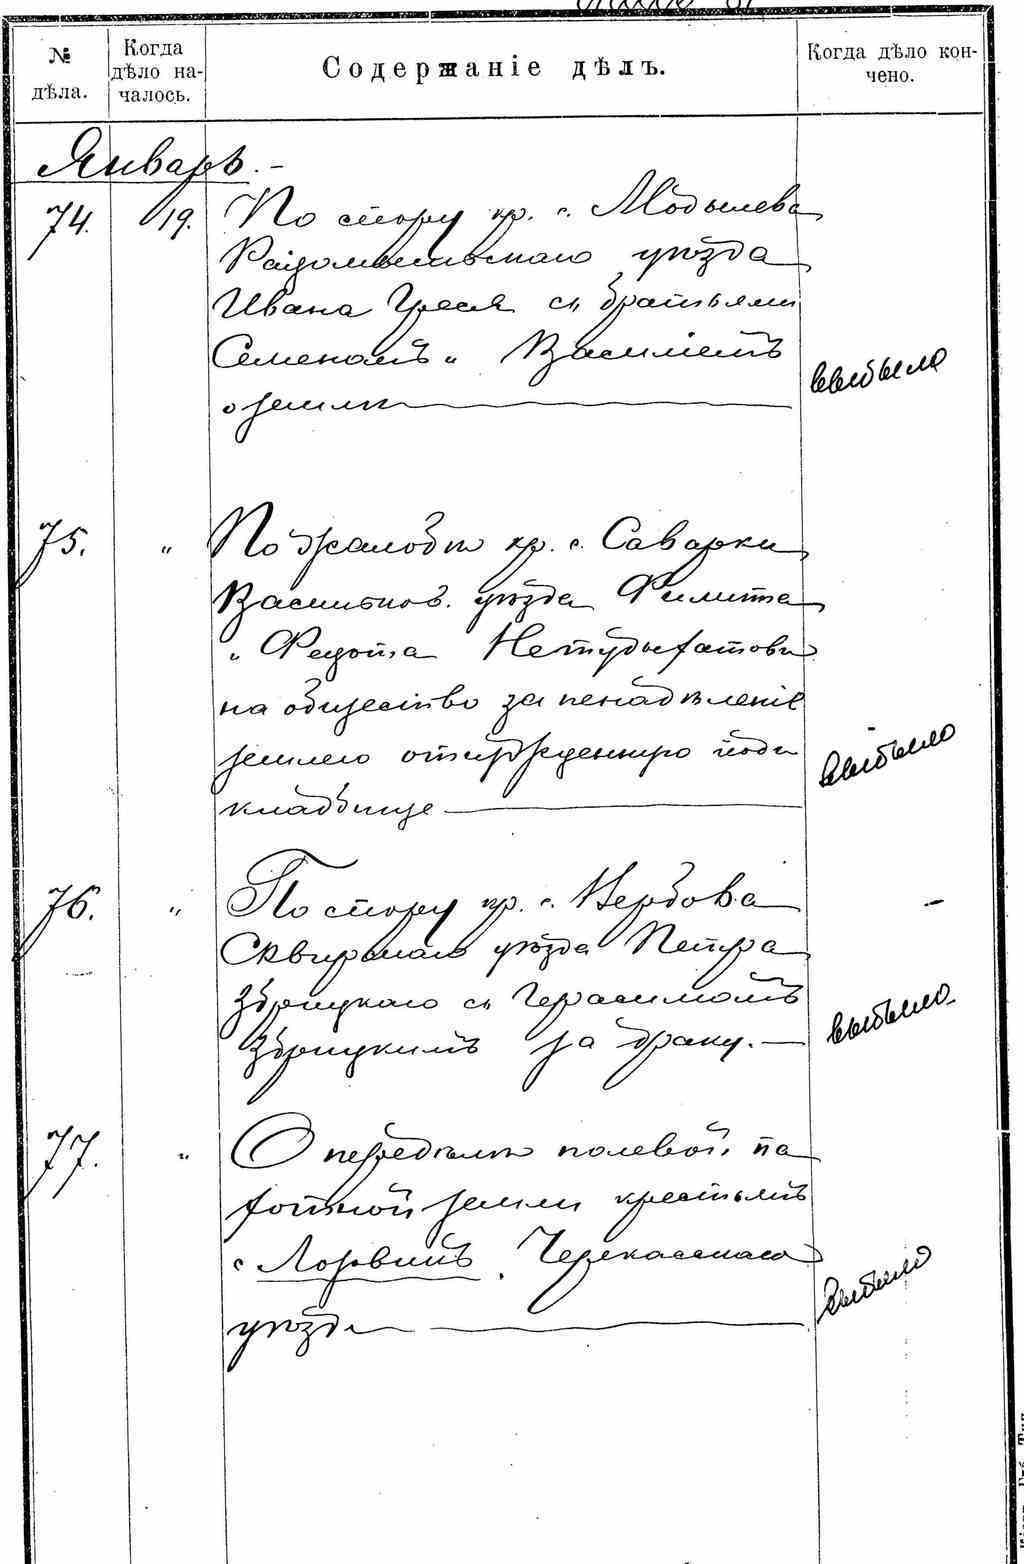 № дѣла.
Когда дѣло на-
чалось.
Содержаніе дѣлъ.
Когда дѣло кон-
чено.
Январь.
74. 19. По спору кр. с. Модылева
Радомысльскаго уѣзда
Ивана Греся съ братьями
Семеномъ и Василіемъ
о землѣ
выбыло
75. " По жалобѣ кр. с. Саварки
Васильков. уѣзда Филипа
и Федота Нетудыхатовы
на общество за ненадѣленіе
землею отчужденную подъ
кладбище
выбыло
76. " По спору кр. с. Вербова
Сквирскаго уѣзда Петра
Збрицкаго съ Герасимомъ
Збрицкимъ за драку.
выбыло
77. " О передѣлѣ полевой па
хотной земли крестьянъ
с. Лозовикъ, Черкасскаго
уѣзда
выбыло